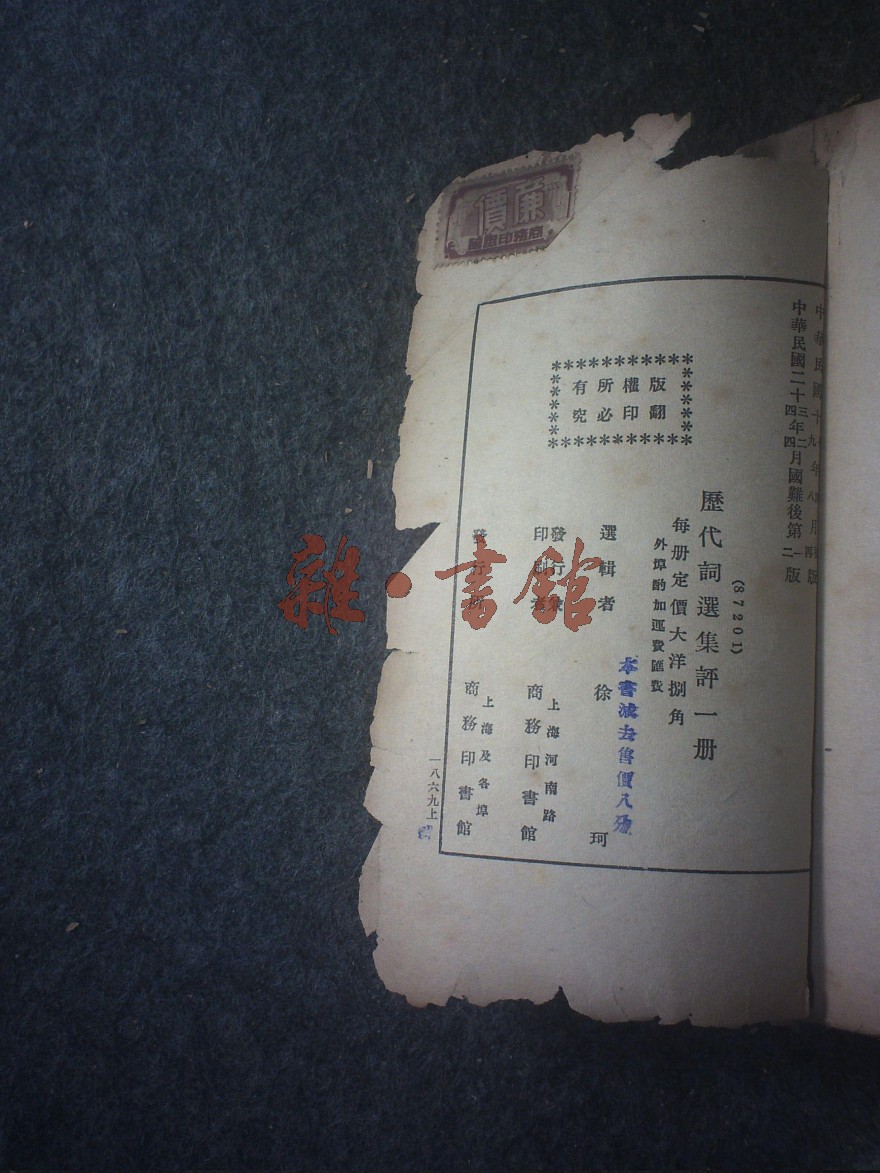 廉價
商務印書館
中華民國二十三年二月國難後第一版
中華民國二十四年四月國難後第二版
(87201)
歷代詞選集評一册
每册定價大洋捌角
外埠酌加運費匯費
版權所有
翻印必究
本書減去售價八
選輯者 徐珂
發行兼印刷者 上海河南路 商務印書館
發行所 上海及各埠 商務印書館
一八六九上
雜·書館